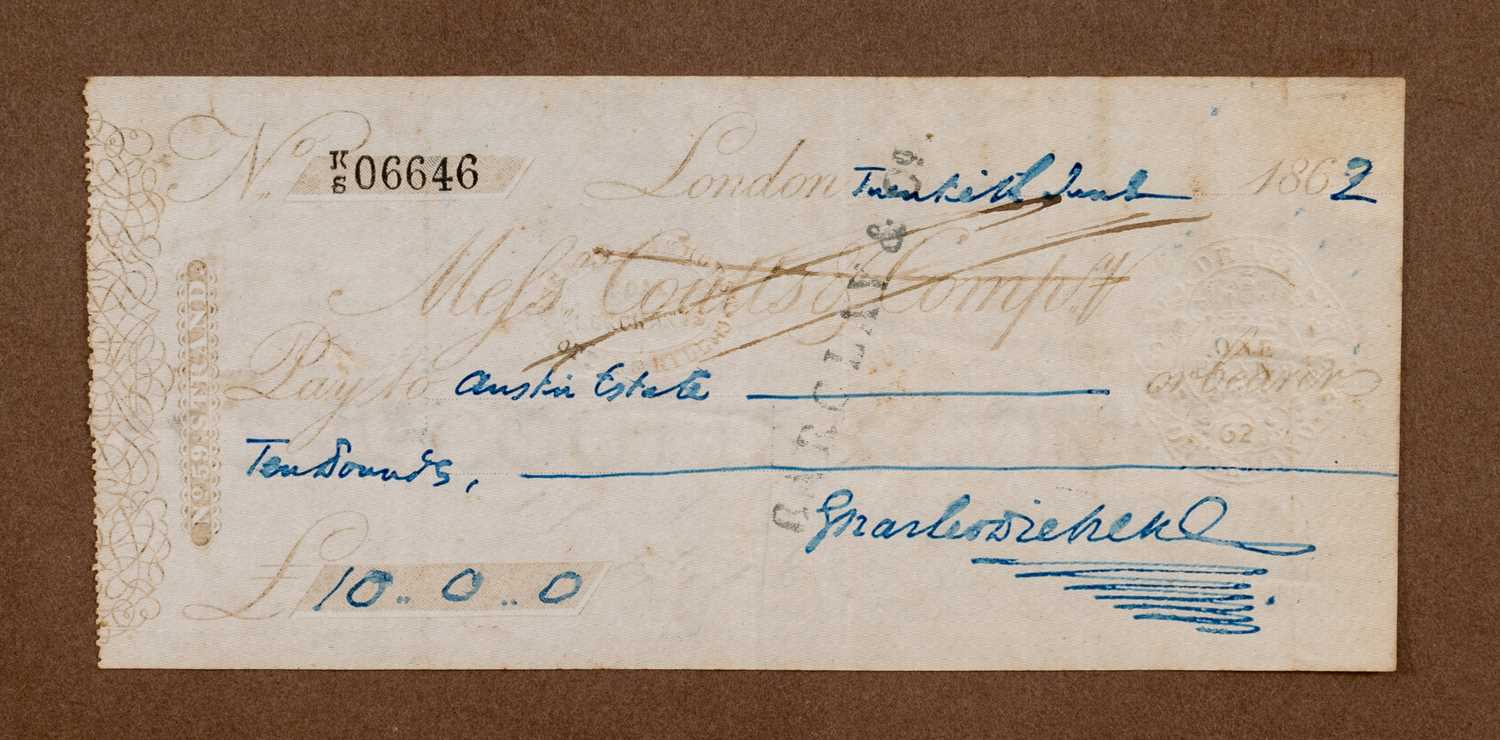 No. K/S 06646 London Twentieth June 1862
Messrs. Coutts & Compy.
Pay to Austin Estate or bearer
Ten Pounds,
Charles Dickens
£ 10..0..0
No. 59. STRAND.
BARCLAY & Co.
ONE
62